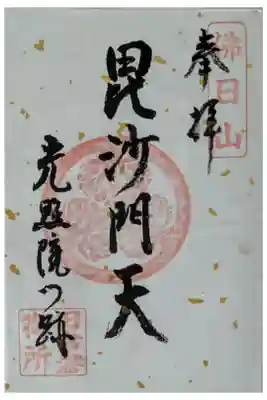 佛日山
奉拝
毘沙門天
光照院門跡